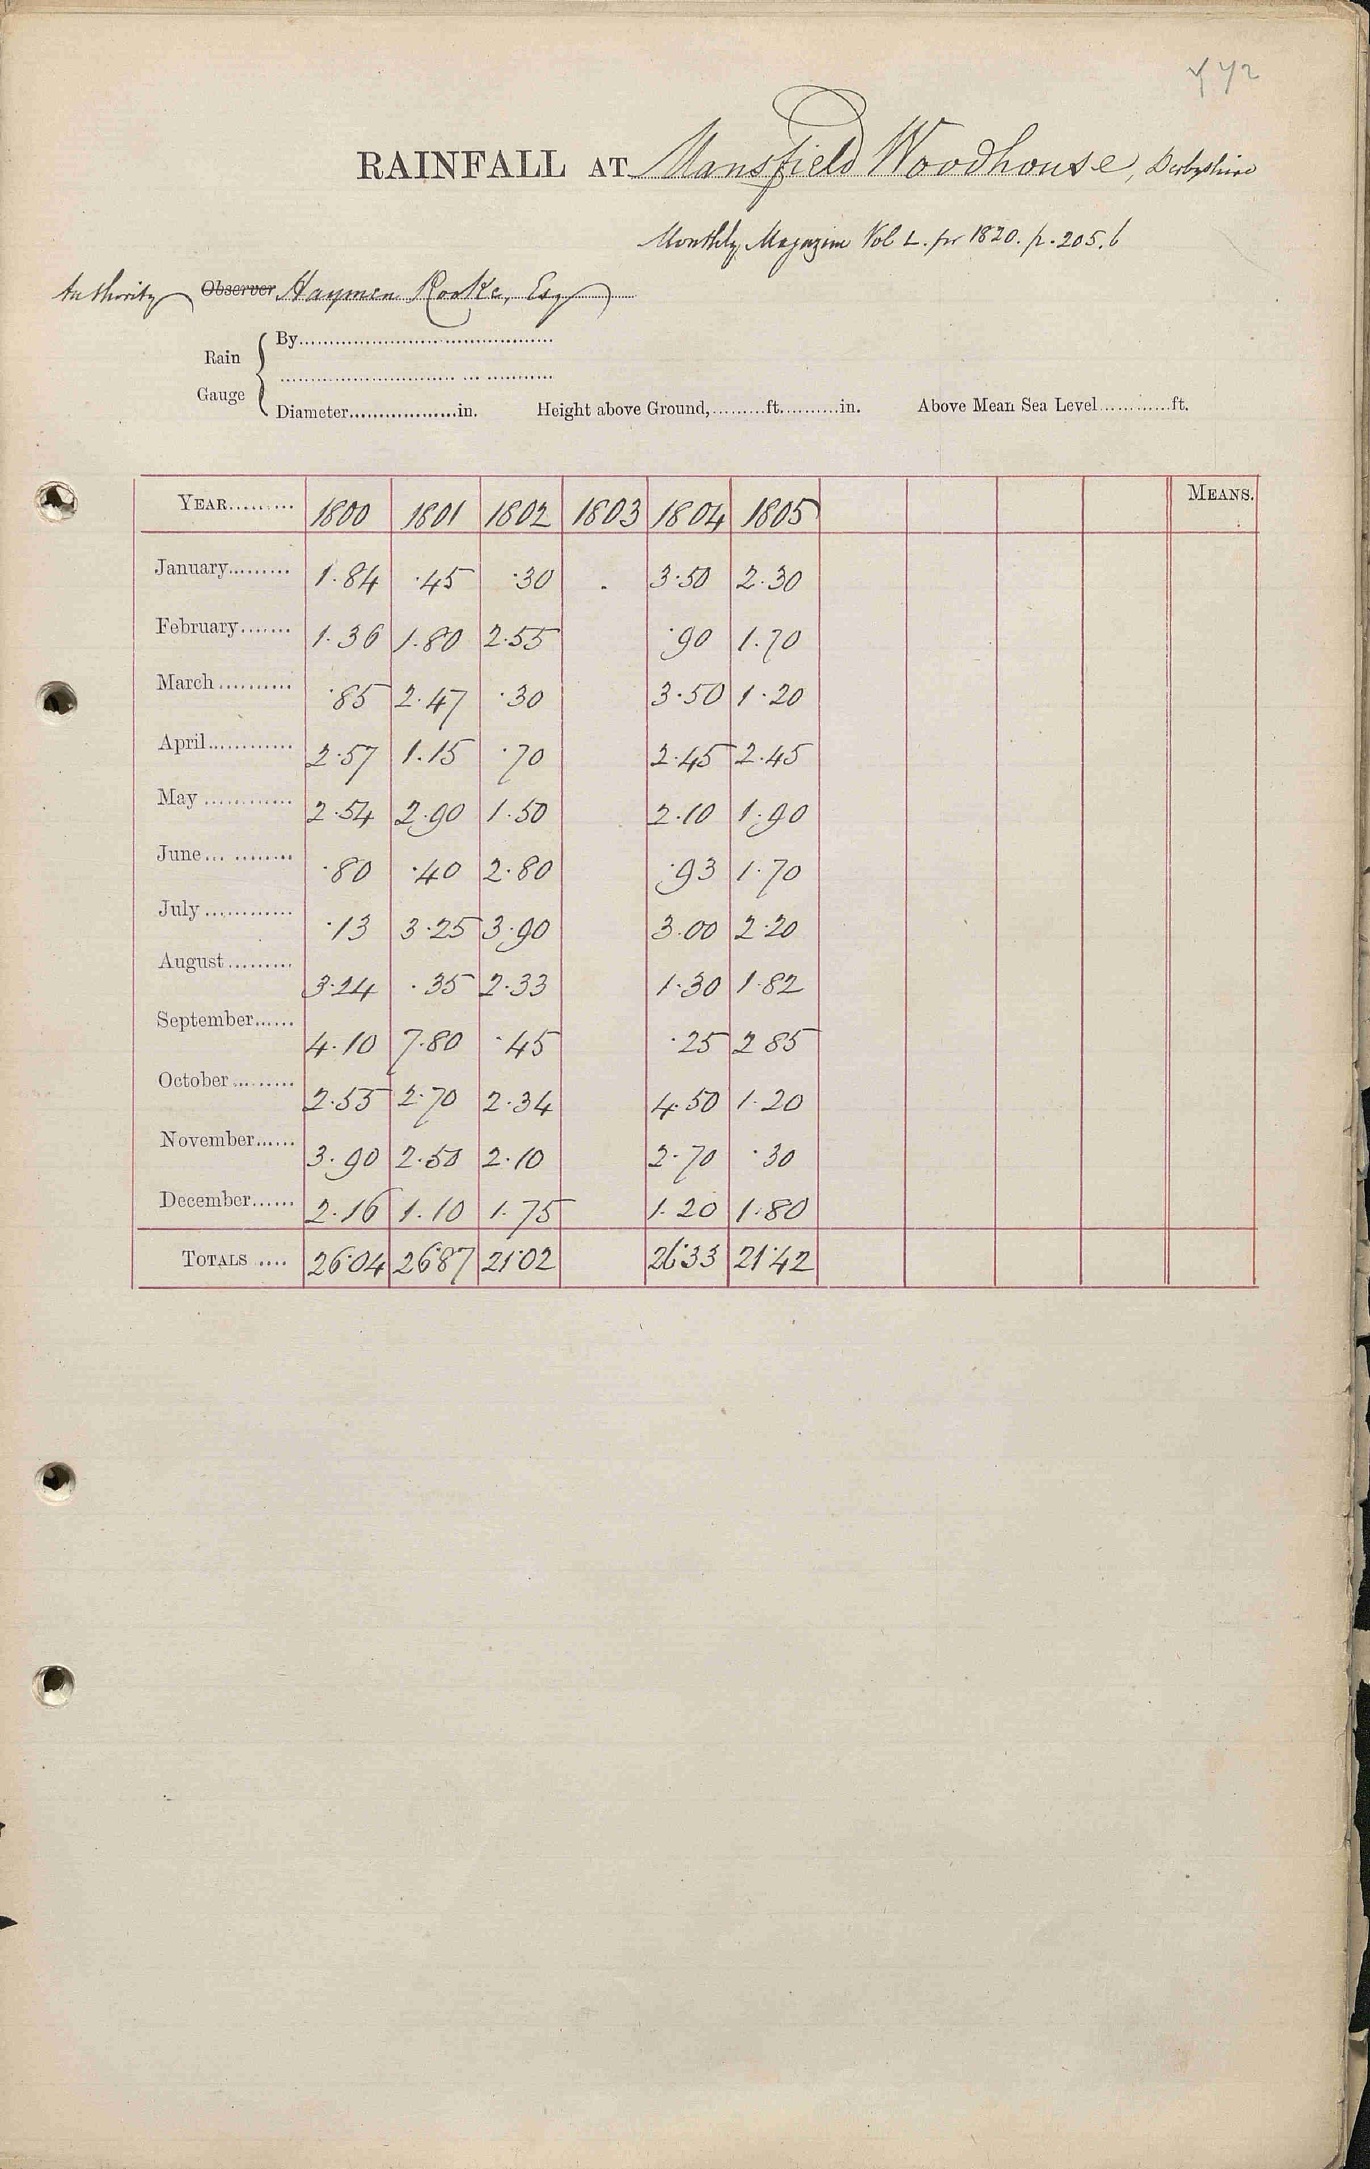 RAINFALL AT Mansfield Woodhouse, Derbyshire
Monthly Magazine Vol L. for 1820. p. 205. 6
Authority Observer Haymen Rooke, Esq
Rain Gauge { By
Diameter in. Height above Ground, ft. in. Above Mean Sea Level ft.
YEAR 1800 1801 1802 1803 1804 1805 MEANS.
January 1.84 .45 .30 . 3.50 2.30
February 1.36 1.80 2.55 .90 1.70
March .85 2.47 .30 3.50 1.20
April 2.57 1.15 .70 2.45 2.45
May 2.54 2.90 1.50 2.10 1.90
June .80 .40 2.80 .93 1.70
July .13 3.25 3.90 3.00 2.20
August 3.24 .35 2.33 1.30 1.82
September 4.10 7.80 .45 .25 2 85
October 2.55 2.70 2.34 4.50 1.20
November 3.90 2.50 2.10 2.70 .30
December 2.16 1.10 1.75 1.20 1.80
TOTALS 26.04 26.87 21.02 26.33 21.42